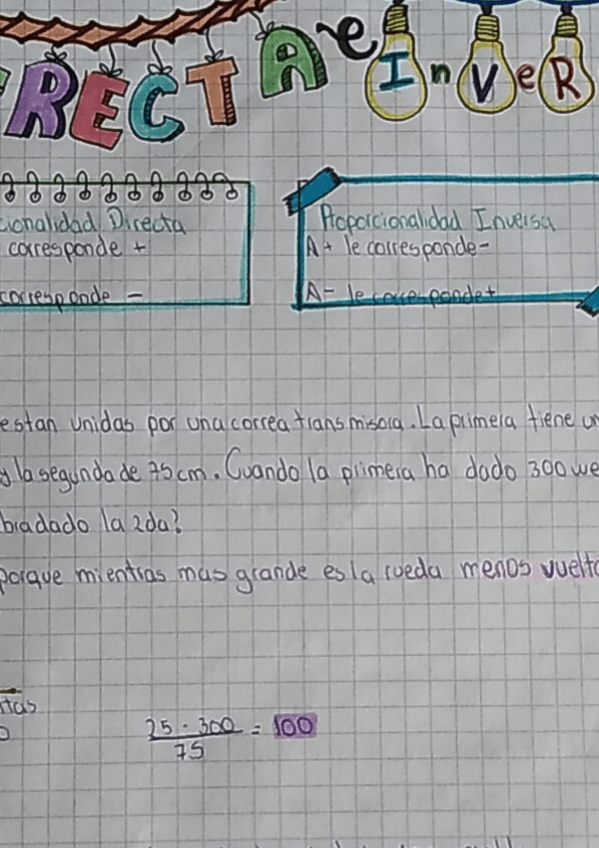 RECTA e InveR
cionalidad Directa
corresponde +
corresponde -
Proporcionalidad Inversa
A+ le corresponde-
A- le corresponde+
estan unidas por una correa transmisora. La primera tiene un
y la segunda de 75cm. Cuando la primera ha dado 300 vue
bradado la 2da?
porque mientras mas grande es la rueda menos vuelta
ltas
0
25 · 300 = 100
75